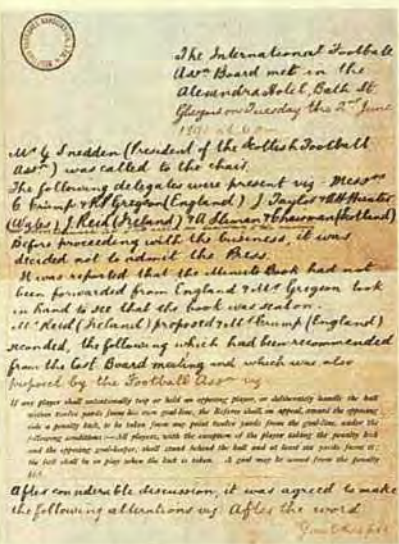 The International Football
Assn Board met in the
Alexandra Hotel, Bath St.
Glasgow on Tuesday the 2nd June
at 6 pm
Mr G Snedden (President of the Scottish Football
Assn) was called to the chair.
The following delegates were present viz. Messrs
C Crump & R P Gregson (England) J Taylor & A H Hunter
(Wales) J Reid (Ireland) & A Sliman & (Scotland)
Before proceeding with the business, it was
decided not to admit the Press.
It was reported that the Minute Book had not
been forwarded from England & Mr Gregson took
in hand to see that the book was sent on.
Mr Reid (Ireland) proposed & Mr Crump (England)
seconded, the following which had been recommended
from the last Board meeting and which was also
proposed by the Football Assn viz
If any player shall intentionally trip or hold an opposing player, or deliberately handle the ball
within twelve yards from his own goal-line, the Referee shall on appeal, award the opposing
side a penalty kick, to be taken from any point twelve yards from the goal-line, under the
following conditions:—All players, with the exception of the player taking the penalty kick
and the opposing goal-keeper, shall stand behind the ball and at least six yards from it;
the ball shall be in play when the kick is taken. A goal may be scored from the penalty
kick.
After considerable discussion, it was agreed to make
the following alterations viz. After the word